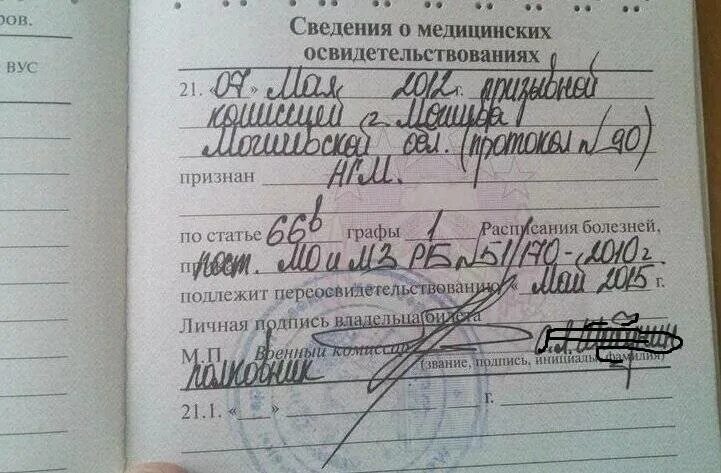 ров.
ВУС
Сведения о медицинских
освидетельствованиях
21. «07» Мая 2012 г. призывной
комиссией г. Могилёва
Могилевской обл. (протокол №90)
признан НГМ.
по статье 66в графы 1 Расписания болезней,
пост. МО и МЗ РБ №51/170-2010г
подлежит переосвидетельствованию « Май 2015 г.
Личная подпись владельца билета
М.П Военный комиссар
полковник (звание, подпись, инициалы, фамилия)
21.1. «___» г.